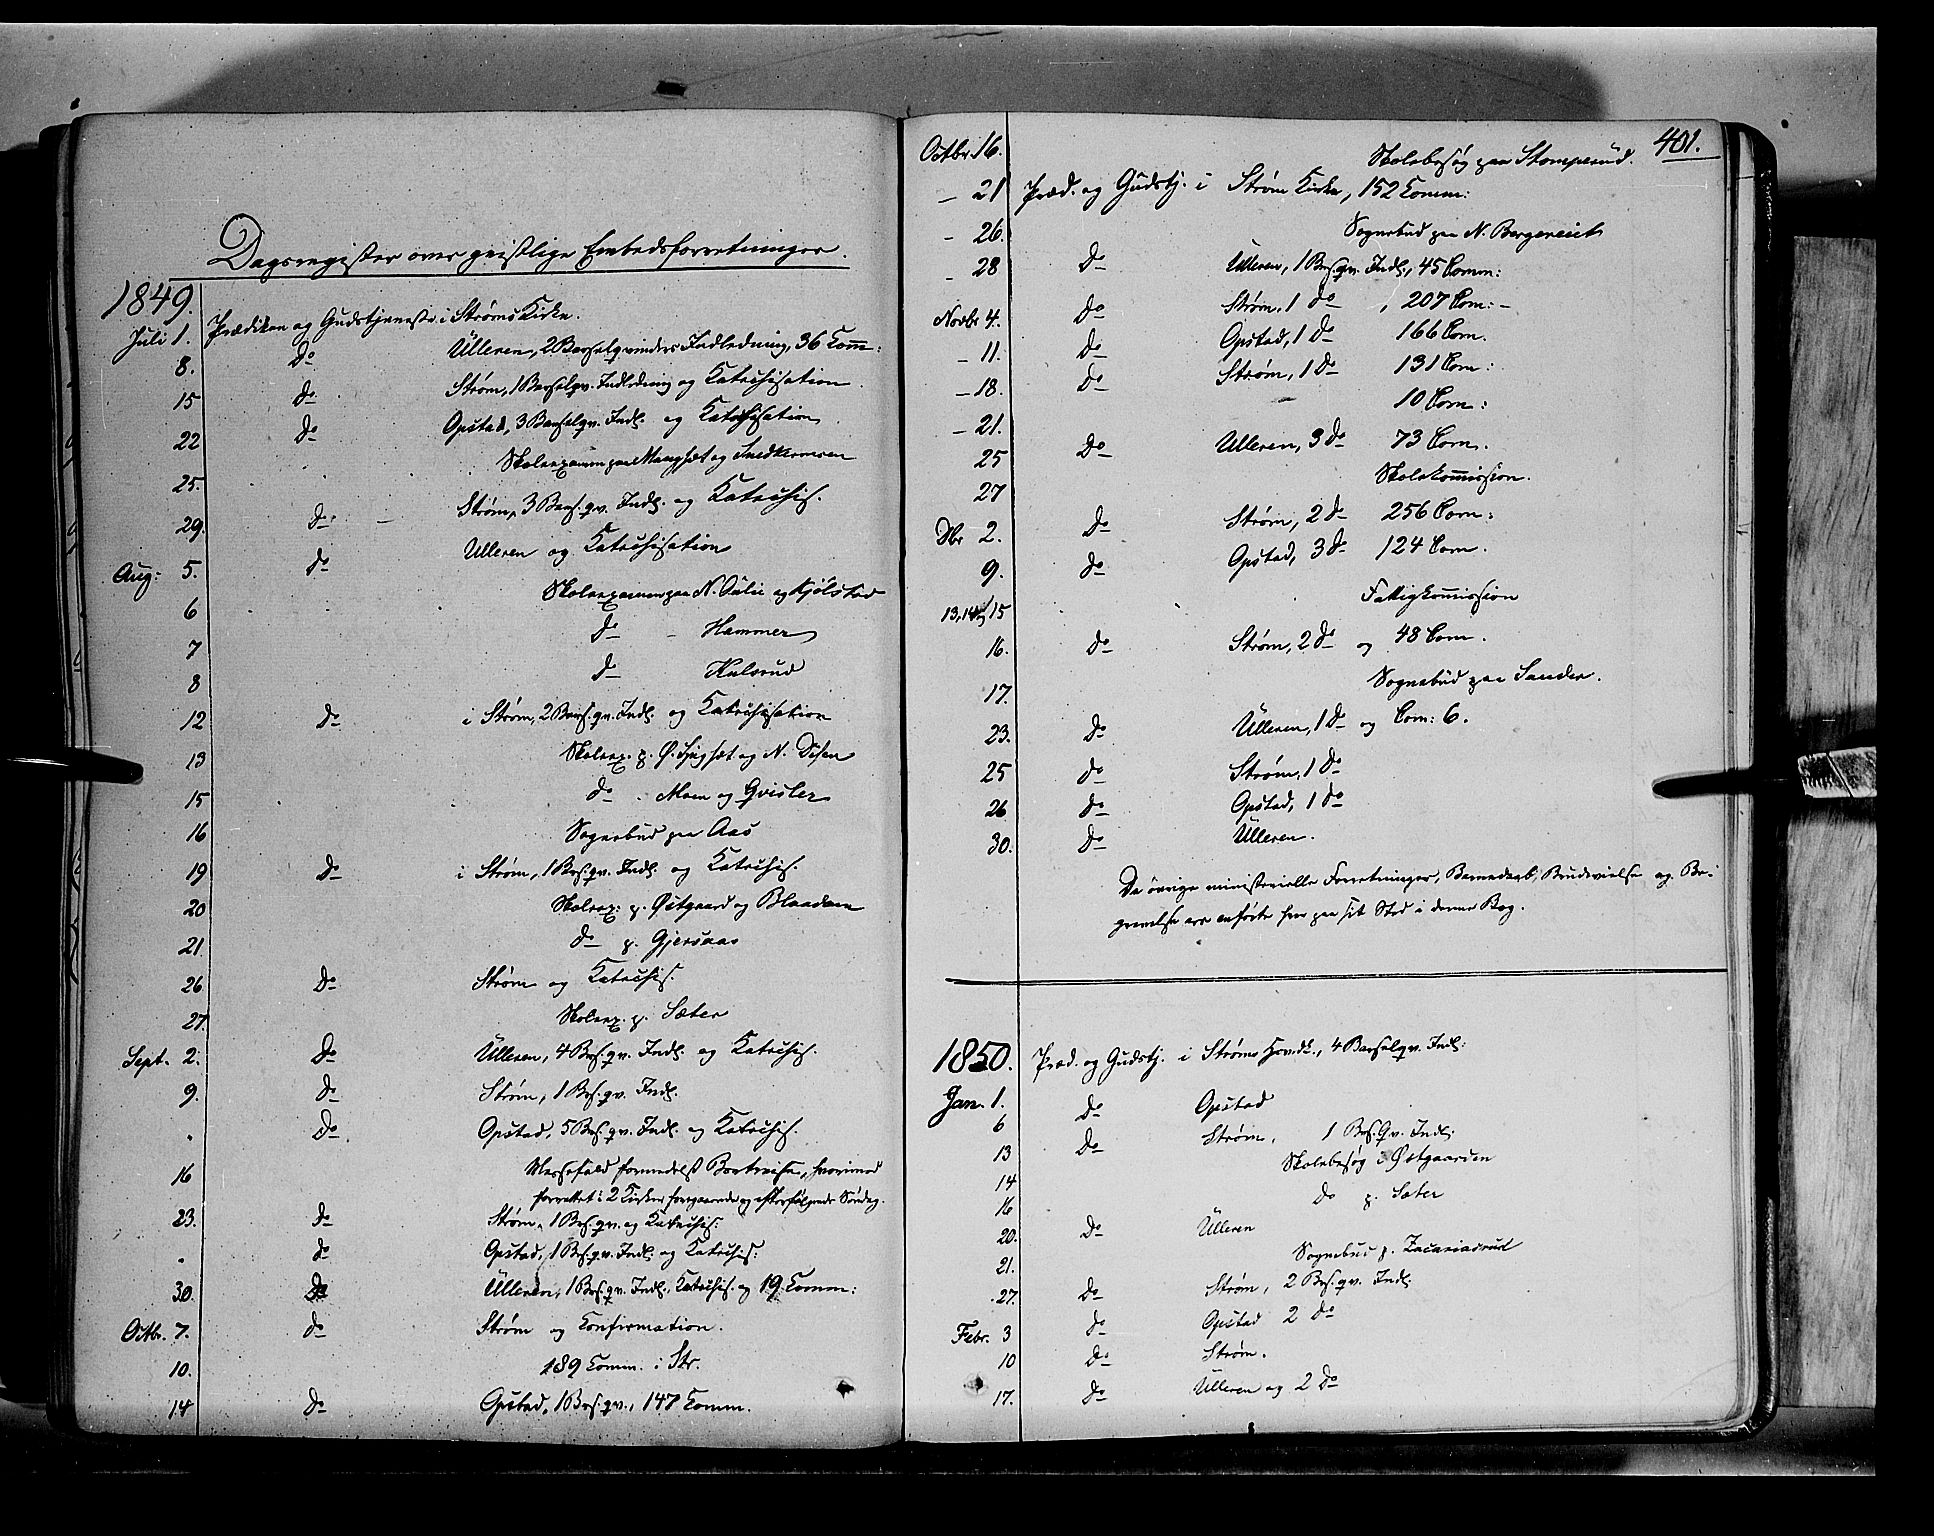 Dagsregister over geistlige Embedsforretninger.
1849.
Juli 1. Prædiken og Gudstjeneste i Strøms Kirke.
8. Do Ulleren, 2 Barselqvinders Indledning, 36 Comm:
15 Do Strøm, 1 Barselqv. Indledning og Katechisation
22 Do Opstad, 3 Barselqv. Indl. og Katechisation
25. Skoleexamen paa Mangset og
29. Do Strøm, 3 Bars.qv. Indl. og Katechis.
Aug: 5. Do Ulleren og Katechisation
6 Skoleexamen paa N. og Kjølstad
7 do - Hammer
8 do Hulsrud
12 do i Strøm, 2 Bars.qv. Indl. og Katechisation
13 Skoleex. p. Ø. og N. Disen
15 do . Moen og Qvisler
16 Sognebud paa Aas
19 Do i Strøm, 1 Brs.qv. Indl. og Katechis.
20 Skoleex: p. Østgaard og
21. do p. Gjersaas
26 Do Strøm og Katechis.
27. Skoleex. p. Sæter
Sept. 2. Do Ulleren, 4 Brs.qv. Indl. og Katechis.
9. Do Strøm, 1 Brs.qv. Indl.
" Do Opstad, 5 Brs.qv. Indl. og Katechis.
16 Messefald formedelst Bortreise, hvorimod
forrettet i 2 Kirker foregaaende og efterfølgende Søndag.
23. Do Strøm, 1 Brs.qv. og Katechis:
" do Opstad, 1 Brs.qv. Indl. og Katechis:
30. Do Ulleren, 1 Brs.qv. Indl., Katechis. og 19 Comm:
Octbr. 7. do Strøm og Confirmation.
10. 189 Comm. i Str.
14 do Opstad, 1 Brs.qv., 147 Comm.
401.
Octbr. 16. Skolebesøg paa Stomperud.
- 21 Præd. og Gudstj. i Strøm Kirke, 152 Comm:
- 26. Sognebud paa N.
- 28 do Ulleren, 1 Brs.qv. Indl., 45 Comm:
Novbr 4. Do Strøm, 1 do , 207 Com: -
- 11. do Opstad, 1 do 166 Com.
- 18. do Strøm, 1 Do 131 Com:
- 21. 10 Com:
25 Do Ulleren, 3 do 73 Com.
27 Skolekommission.
Dbr 2. do Strøm, 2 do 256 Com:
9. do Opstad, 3 do 124 Com.
13, 14 og 15 Fattigkommission
16. do Strøm, 2 do og 48 Com.
17. Sognebud paa Sander.
23. do Ulleren, 1 do og Com: 6.
25 do Strøm, 1 do
26 do Opstad, 1 do
30. do Ulleren.
De øvrige ministerielle Forretninger, Barnedaab, Brudevielse og Be-
gravelse ere anførte hver paa sit Sted i denne Bog.
1850. Præd. og Gudstj. i Strøms Hovedk., 4 Barselqv. Indl:
Jan. 1. do Opstad
6 Do Strøm, 1 Brs.Qv. Indl:
13 Skolebesøg i Østgaarden
14 do p. Sæter
16
20. do Ulleren
21. Sognebud p. Zacariasrud
27. do Strøm, 2 Brs.qv. Indl.
Febr. 3 do Opstad 2 do
10 do Strøm.
17. do Ulleren og 2 do